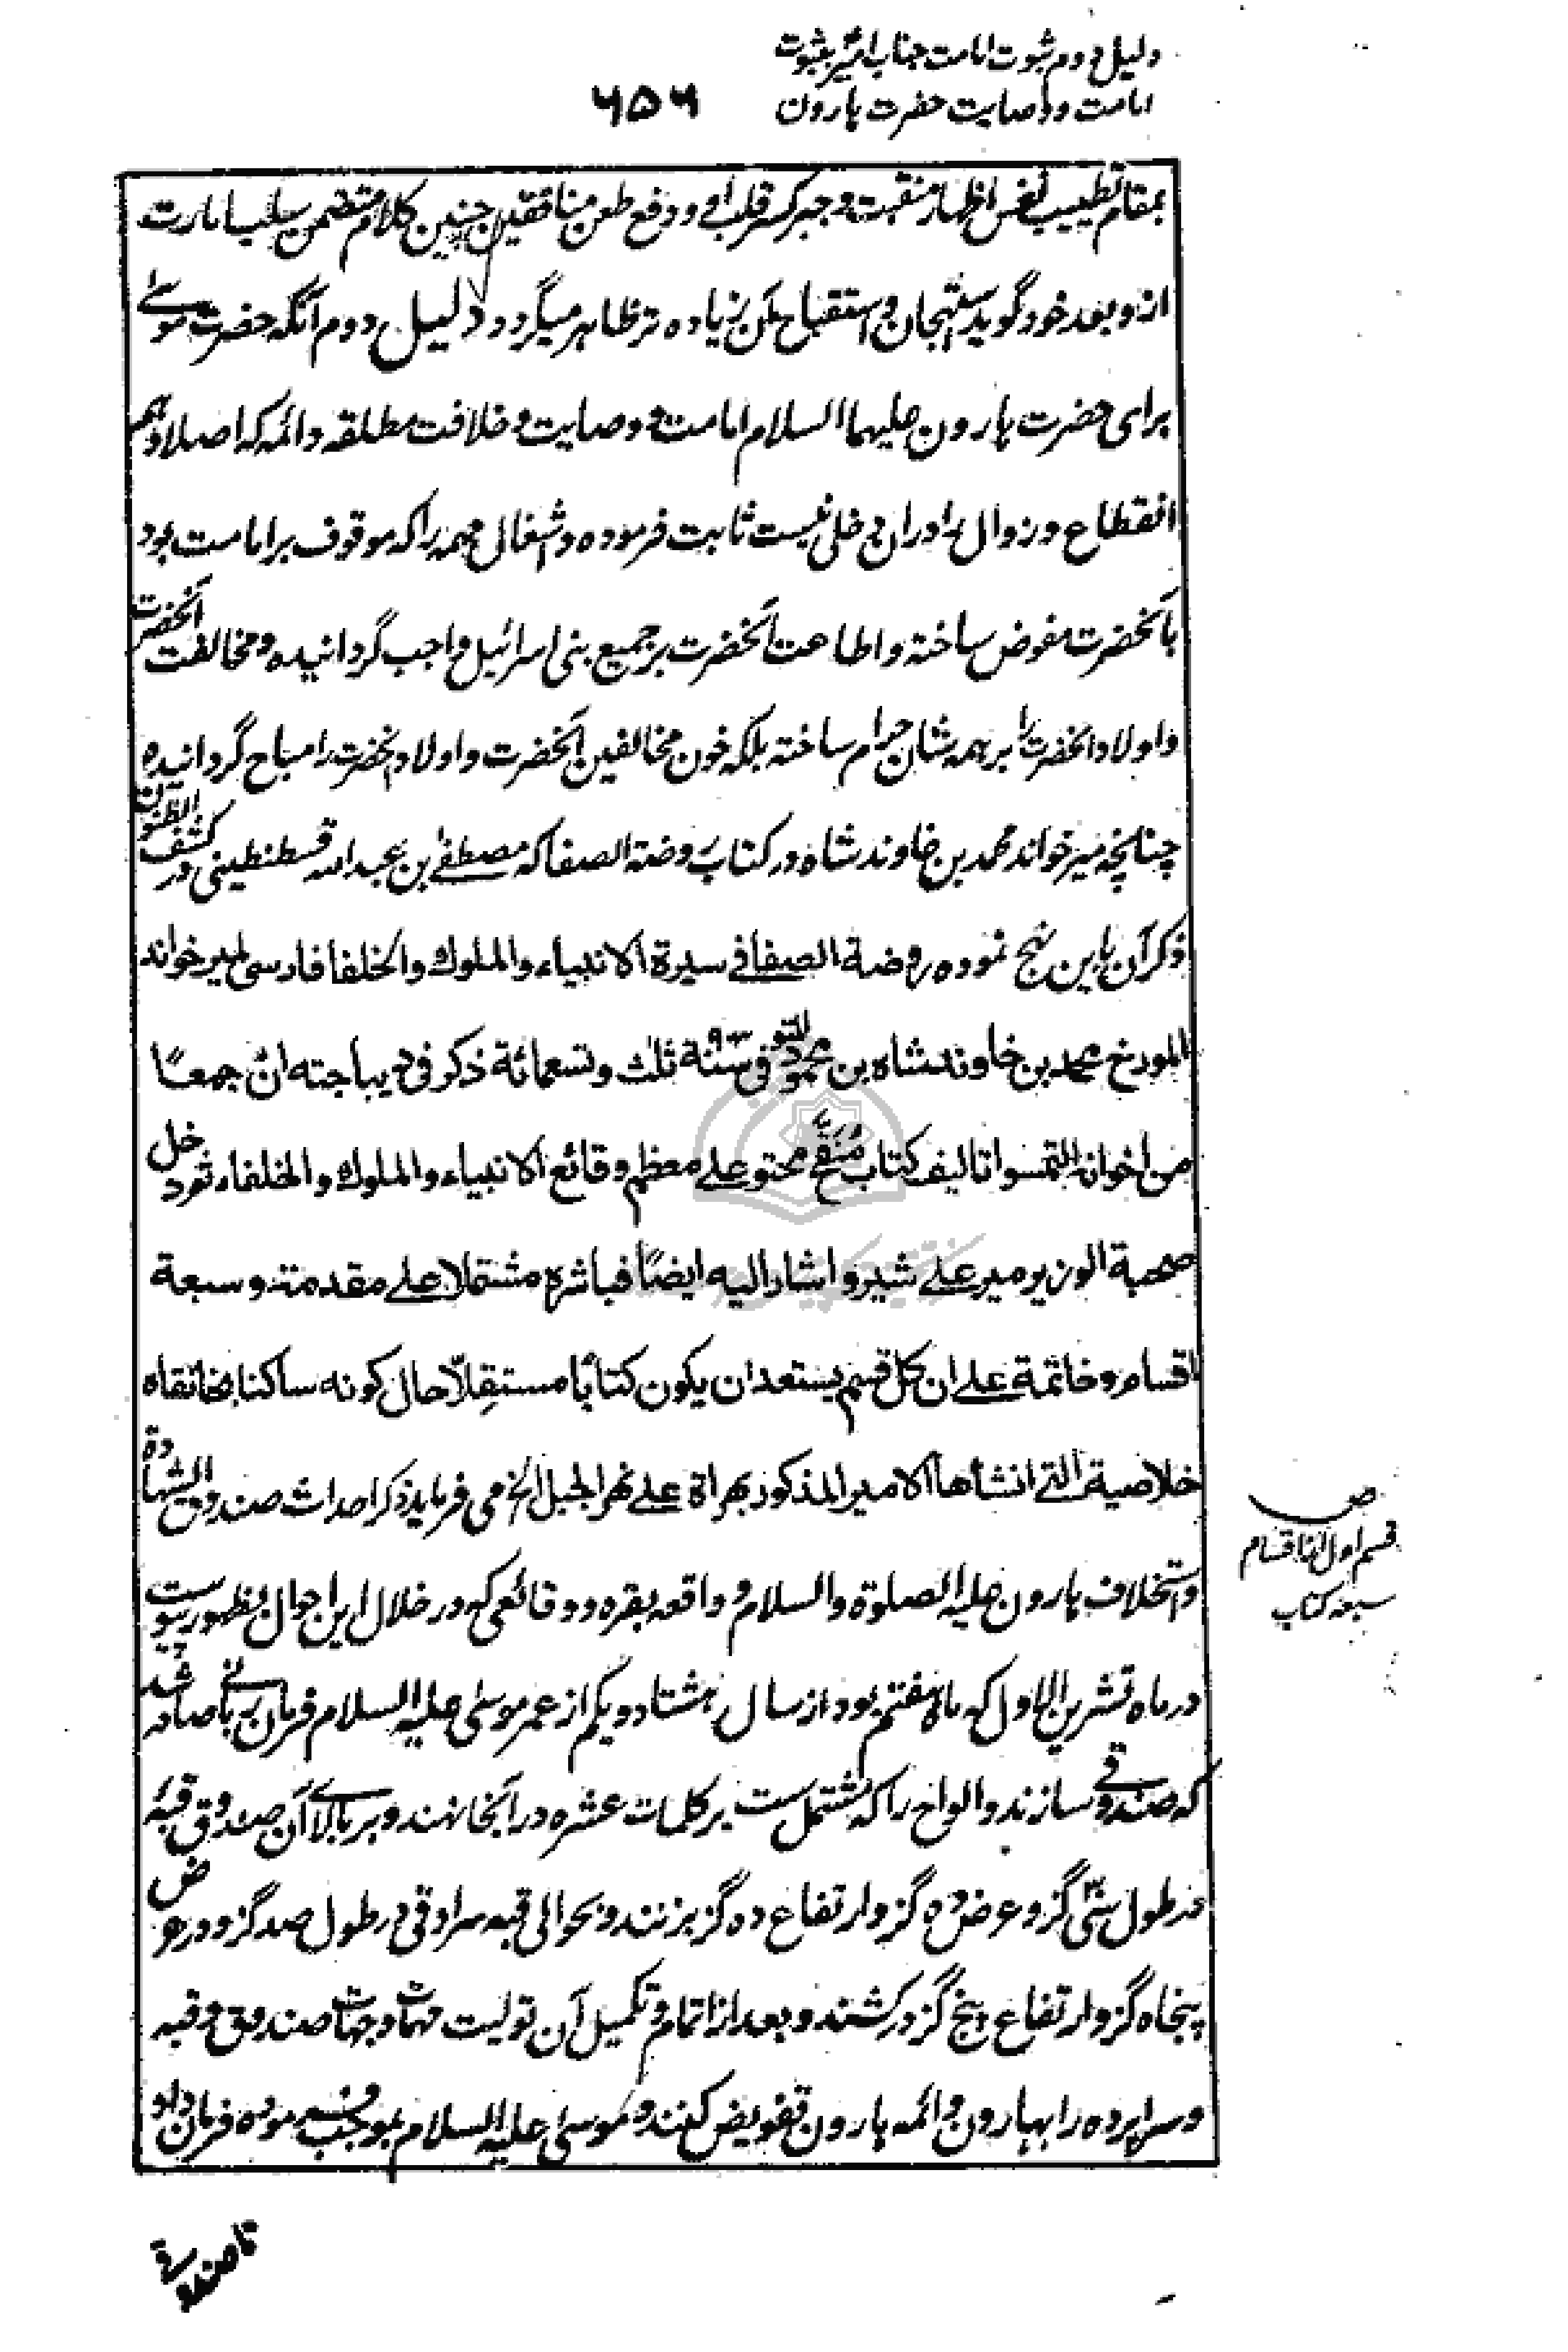 دلیل دوم ثبوت امامت جناب امیر بثبوت
امامت و وصایت حضرت هارون
۶۵۶
بمقام تطییب نفس و اظهار منقبت و جبر کسر قلب او و دفع طعن منافقین چنین کلام متضمن سلب امارت
ازو بعد خود گوید استهجان و استقباح آن زیاده تر ظاهر میگردد دلیل دوم آنکه حضرت موسی
برای حضرت هارون علیهما السلام امامت و وصایت و خلافت مطلقه دائمه که اصلا وهم
انقطاع و زوال را دران دخلی نیست ثابت فرموده و اشغال مهمه را که موقوف بر امامت بود
بآنحضرت مفوض ساخته و اطاعت آنحضرت بر جمیع بنی اسرائیل واجب گردانیده و مخالفت آنحضرت
و اولاد آنحضرت را بر همه شان حرام ساخته بلکه خون مخالفین آنحضرت و اولاد آنحضرت را مباح گردانیده
چنانچه میرخواند محمد بن خاوند شاه در کتاب روضة الصفا که مصطفی بن عبد الله قسطنطینی در کشف الظنون
ذکر آن باین نهج نموده روضة الصفا فی سیرة الانبیاء والملوك والخلفا فارسی لمیرخواند
المورخ محمد بن خاوند شاه بن محمود المتوفی سنة ۹۰۳ ثلث وتسعمائة ذکر فی دیباجته ان جمعًا
من اخوانه التمسوا تالیف کتاب منقّح محتو علی معظم وقائع الانبیاء والملوك والخلفاء ثم دخل
صحبة الوزیر میر علی شیر و اشار الیه ایضًا فباشره مشتملا علی مقدمة وسبعة
اقسام وخاتمة علی ان کل قسم یستعد ان یکون کتابًا مستقلّا حال کونه ساکنا بخانقاه
خلاصیة التی انشأها الامیر المذکور بهراة علی نهر الجبل الخ می فرماید ذکر احداث صندوق الشهادة
و استخلاف هارون علیه الصلوة والسلام و واقعه بقره و وقائعی که در خلال این احوال بظهور پیوست
در ماه تشرین الاول که ماه هفتم بود از سال هشتاد و یکم از عمر موسی علیه السلام فرمان ربانی صادر شد
که صندوقی سازند و الواح را که مشتمل ست بر کلمات عشره در آنجا نهند و بر بالای آن صندوق قبهٔ
در طول سی گز و عرض ده گز و ارتفاع ده گز بزنند و بحوالی قبه سرادقی در طول صد گز و در عرض
پنجاه گز و ارتفاع پنج گز درکشند و بعد از اتمام و تکمیل آن تولیت مهمات و جهات صندوق و قبه
و سراپرده را بهارون و ائمه هارون تفویض کنند و موسی علیه السلام بموجب فرموده فرمان داد
ص
قسم اول از اقسام
سبعه کتاب
تا صندوق